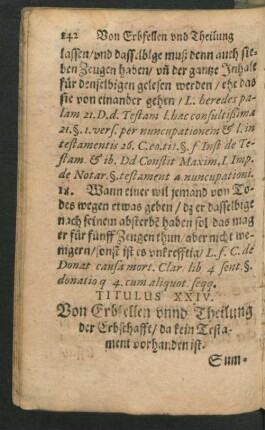 142 Von Erbfellen vnd Theilung
lassen/vnd dasselbige muß denn auch sie-
ben Zeugen haben/ vn̄ der gantze Inhalt
für denselbigen gelesen werden / ehe das
sie von einander gehen / L. heredes pa-
lam 21. D. d. Testam l. hac consultissimâ
21. §. 1. vers. per nuncupationem & l. in
testamentis 26. C. eo. tit. §. f Inst de Te-
stam. & ib. Dd Constit Maxim. I. Imp.
de Notar. §. testament a nuncupationi.
18. Wann einer wil jemand von To-
des wegen etwas geben / dz er dasselbige
nach seinem absterbē haben sol das mag
er für fünff Zeugen thun/ aber nicht we-
nigern/ sonst ist es vnkrefftig/ L. f. C. de
Donat causa mort. Clar. lib 4 sent. §.
donatio q 4. cum aliquot seqq.
TITULUS XXIV.
Von Erbfellen vnnd Theilung
der Erbschafft/ da kein Testa-
ment vorhanden ist.
Sum-